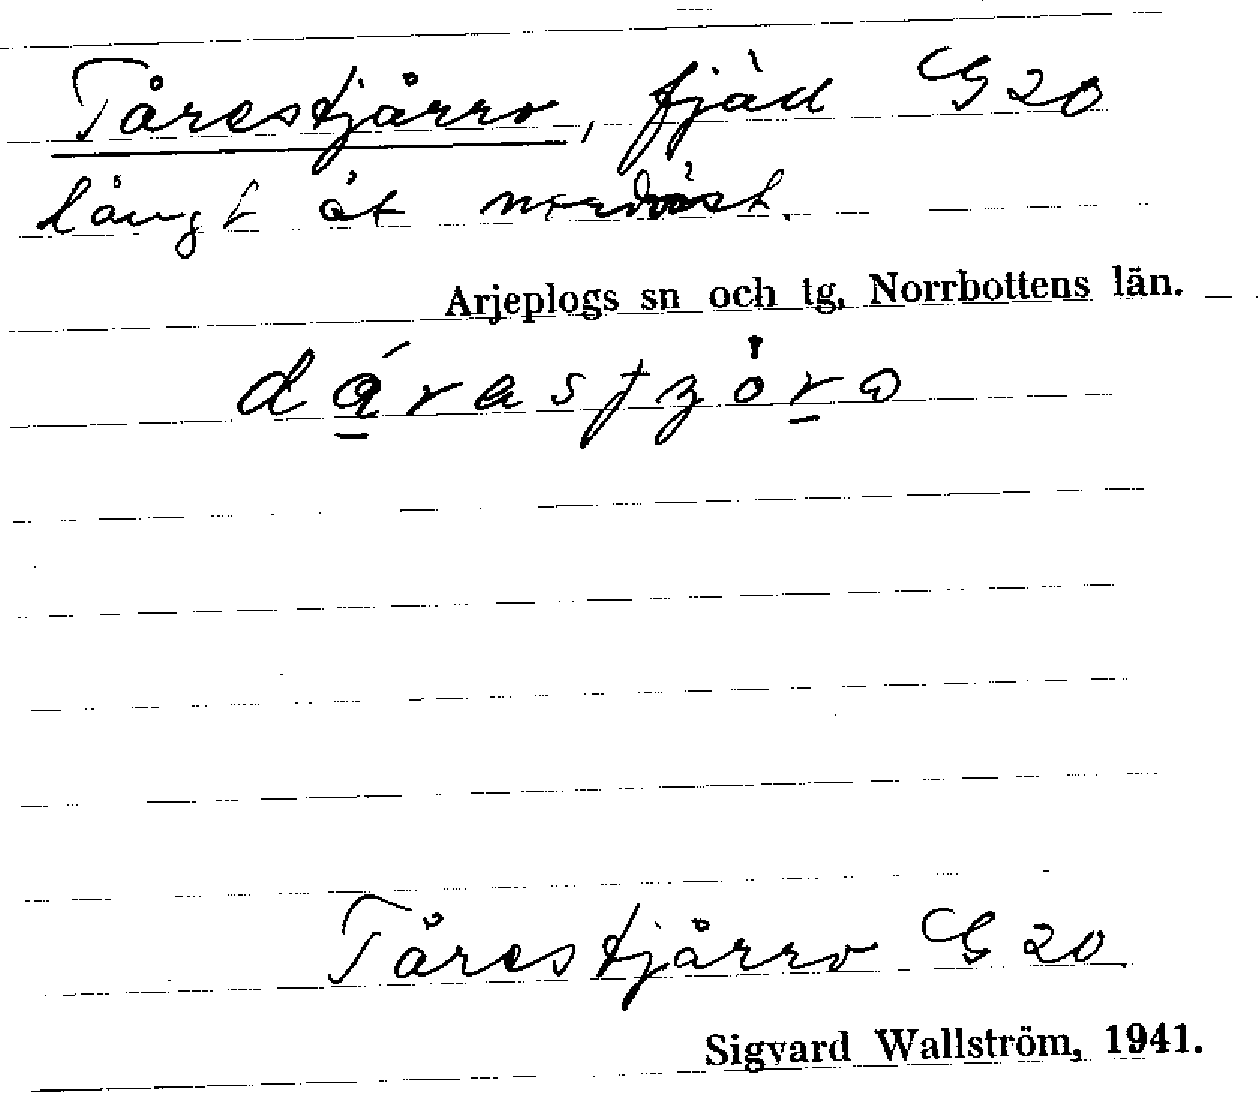 Tårestjårro, fjäll G 20
långt åt nordväst.
Arjeplogs sn och tg, Norrbottens län.
Tårestjårro G 20
Sigvard Wallström, 1941.